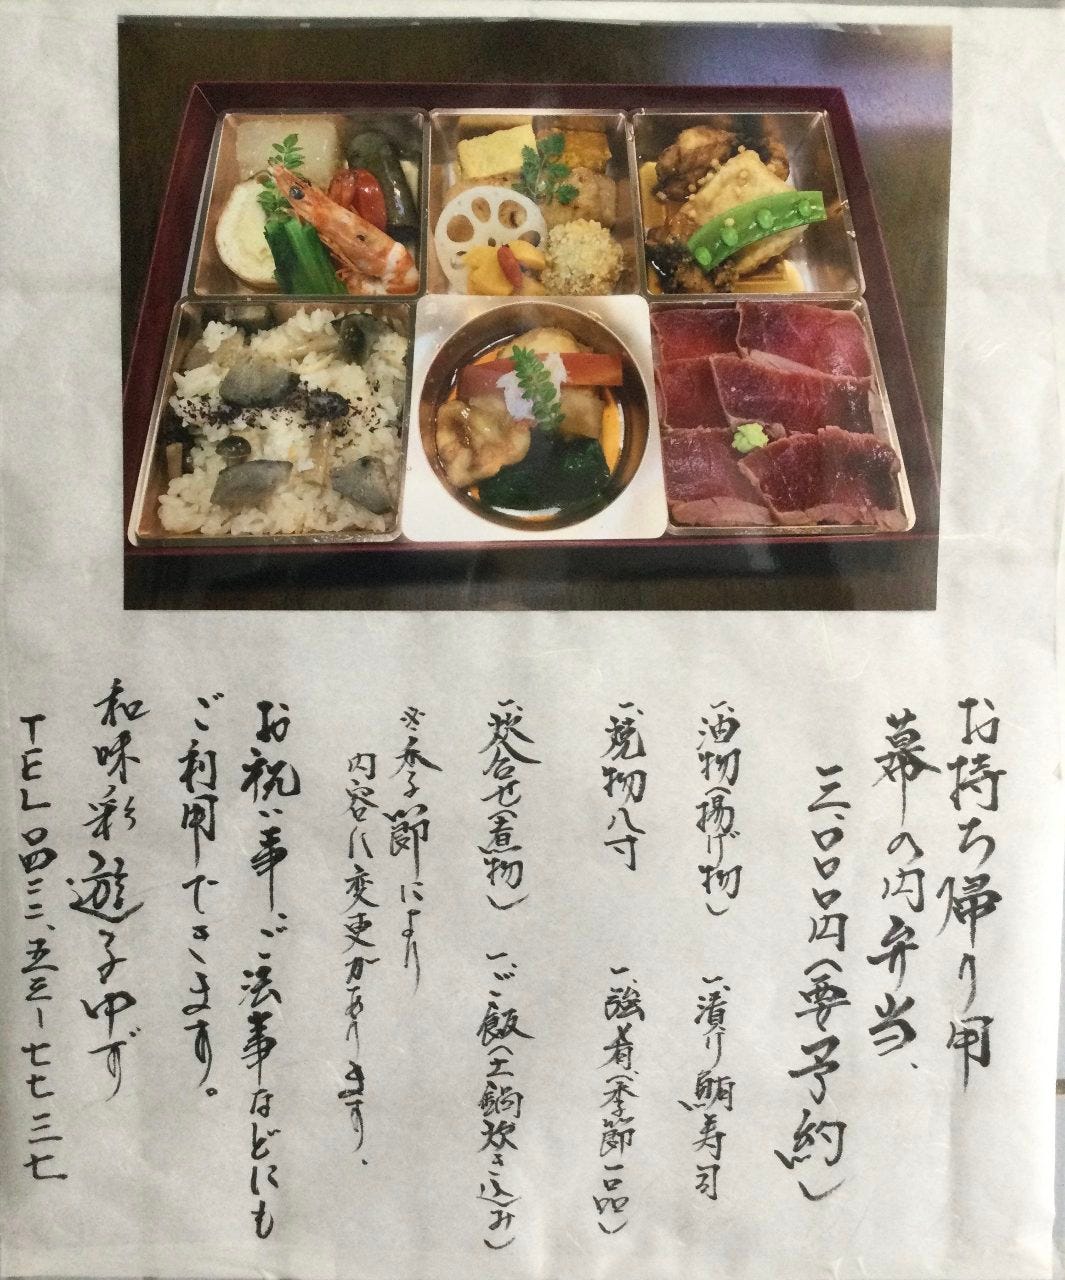 お持ち帰り用
幕の内弁当、
三、〇〇〇円(要予約)
一、油物(揚げ物)
一、漬け鮪寿司
一、焼物八寸
一、強肴(季節一品)
一、炊合せ(煮物)
一、ご飯(土鍋炊き込み)
※季節により
内容に変更があります、
お祝い事、ご法事などにも
ご利用できます。
和味彩 遊子中ず
TEL〇四三三、五三ー七七三七